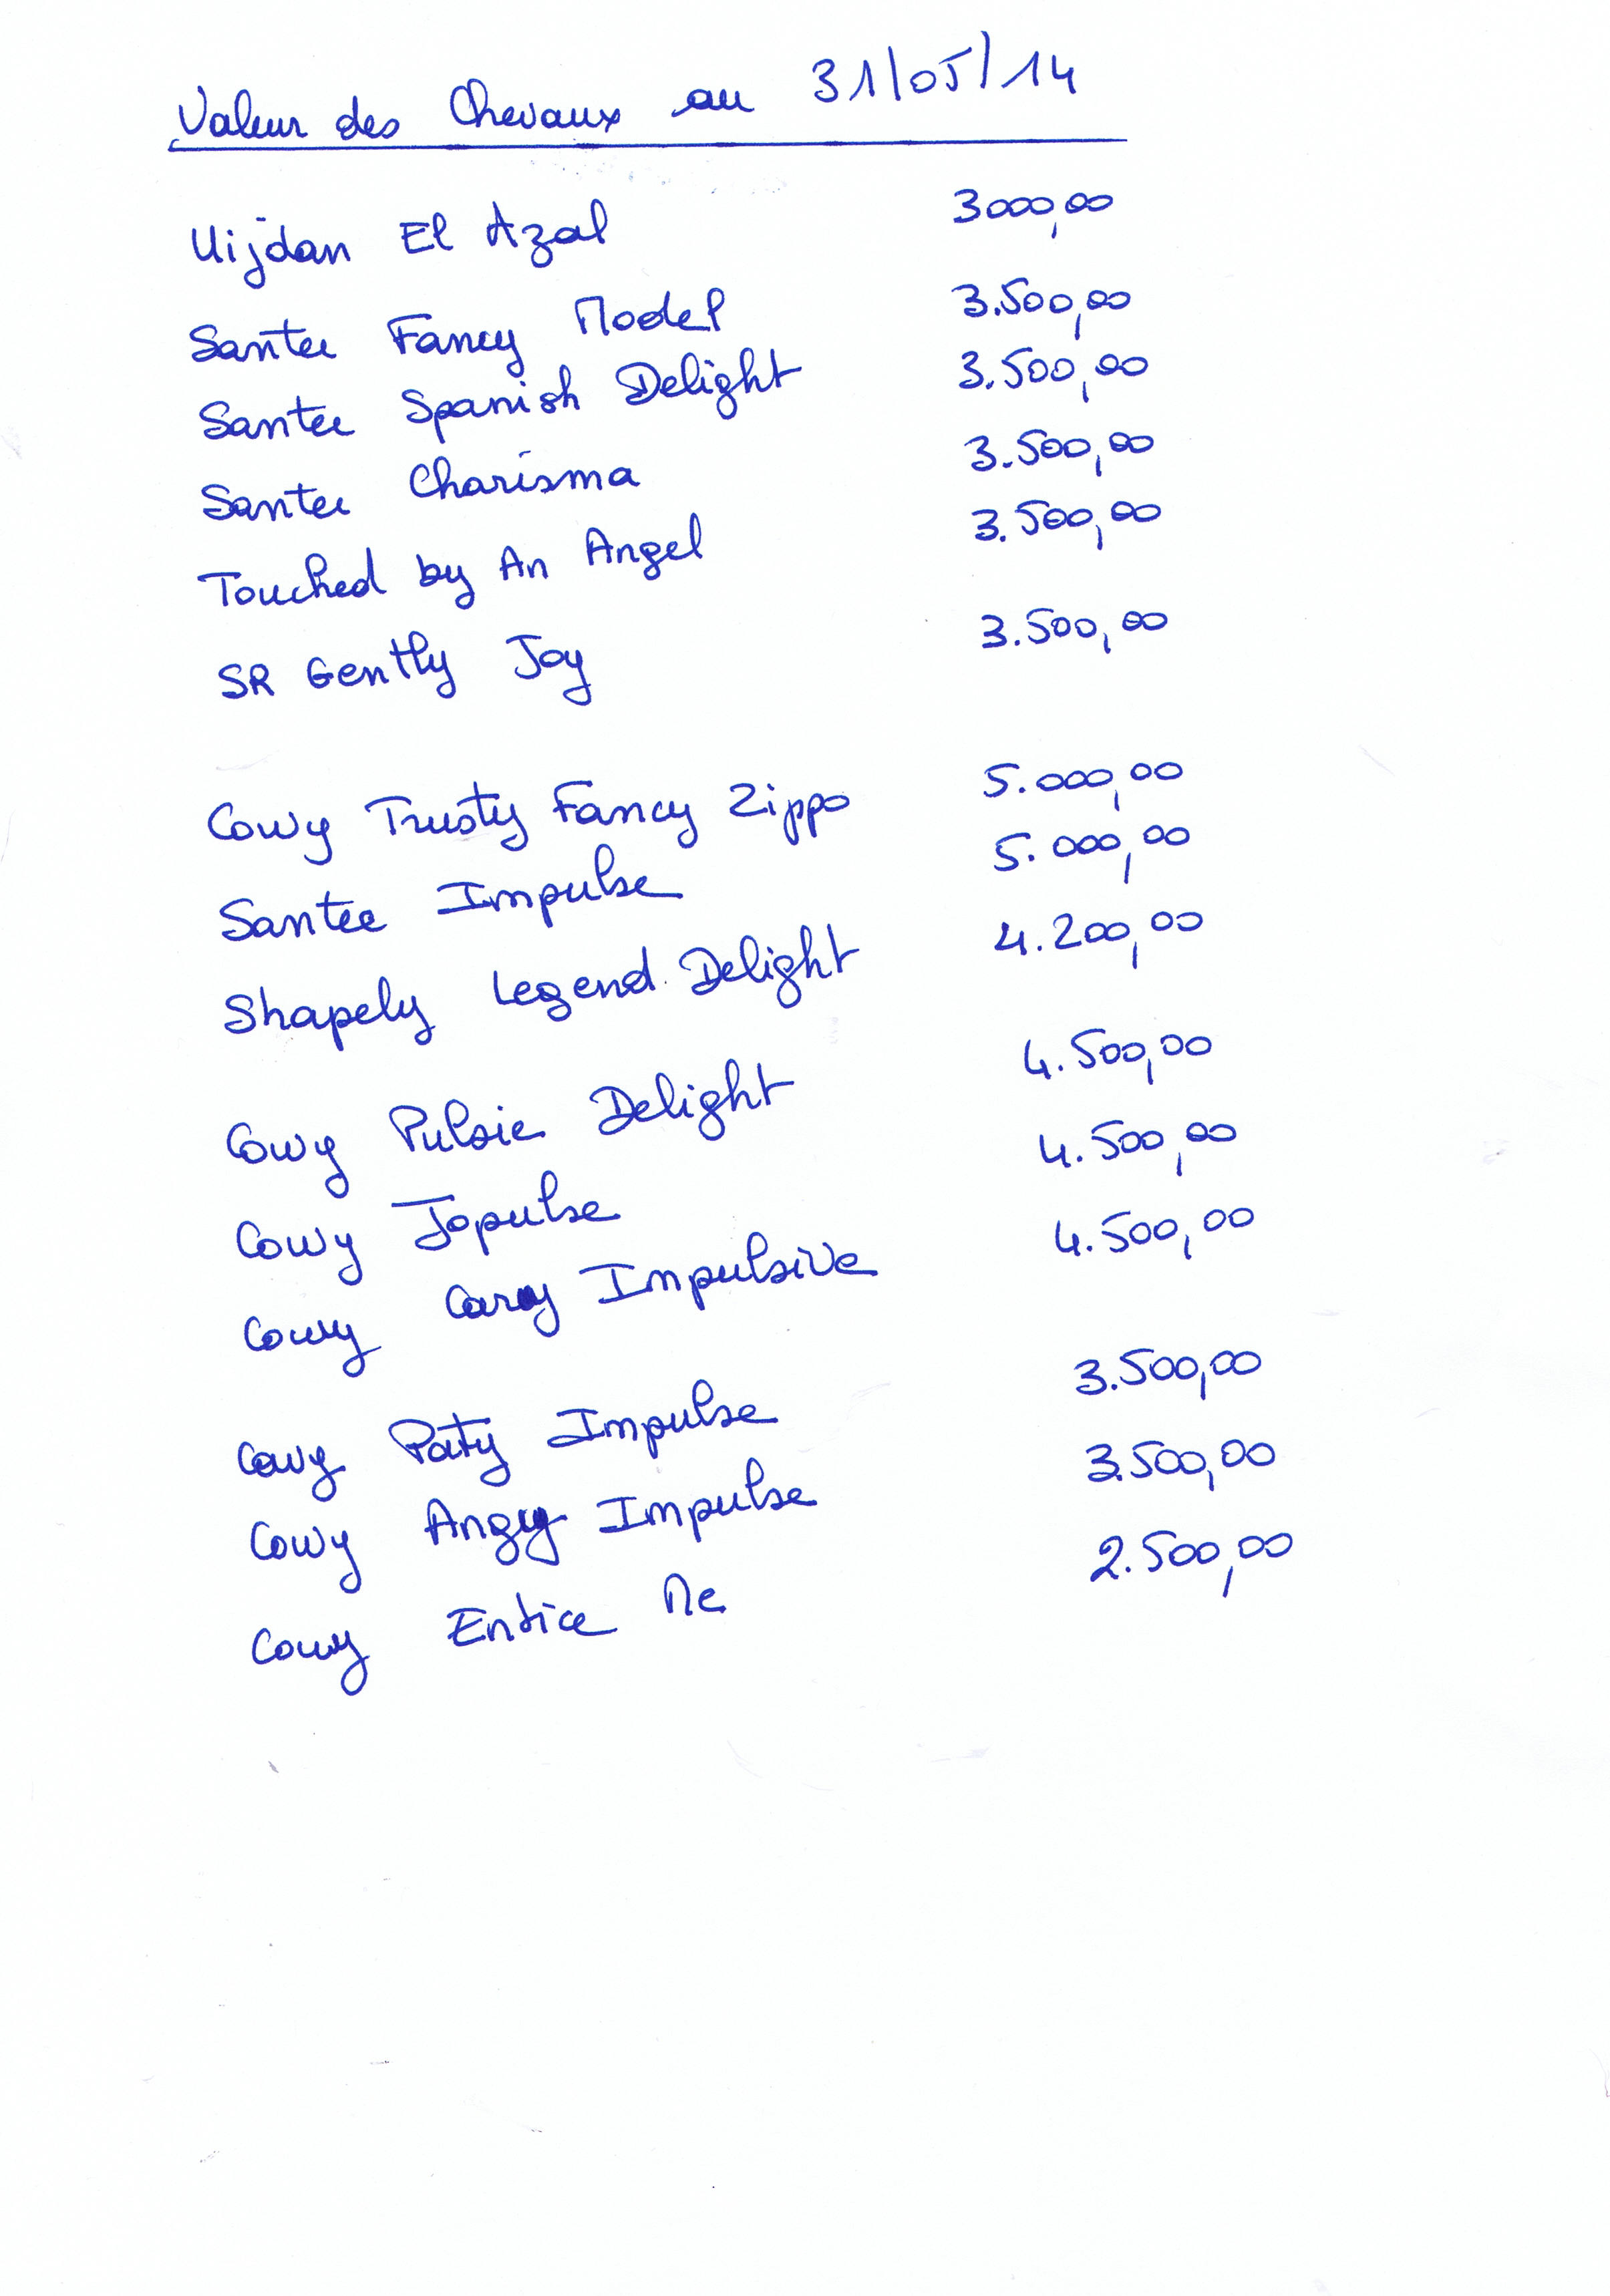 Valeur des Chevaux au 31/05/14
Uijdan El Azal 3000,00
Santee Fancy Model 3.500,00
Santee Spanish Delight 3.500,00
Santee Charisma 3.500,00
Touched by An Angel 3.500,00
SR Gently Joy 3.500,00
Cowy Trusty Fancy Zippo 5.000,00
Santee Impulse 5.000,00
Shapely Legend Delight 4.200,00
Cowy Pulsie Delight 4.500,00
Cowy Jopulse 4.500,00
Cowy Impulsive 4.500,00
Cowy Paty Impulse 3.500,00
Cowy Angy Impulse 3.500,00
Cowy Entice Me 2.500,00